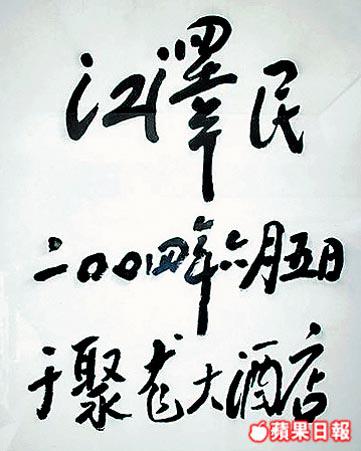 江澤民
二〇〇四年六月五日
于聚龙大酒店
蘋果日報